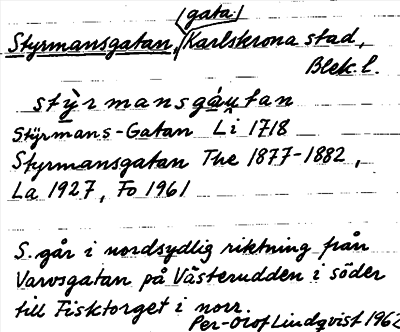 gata
Styrmansgatan, Karlskrona stad,
Blek. l.
stỳrmansgáutan
Styrmans-Gatan Li 1718
Styrmansgatan The 1877-1882,
La 1927, Fo 1961
S. går i nordsydlig riktning från
Varvsgatan på Västerudden i söder
till Fisktorget i norr.
Per-Olof Lindqvist 1962